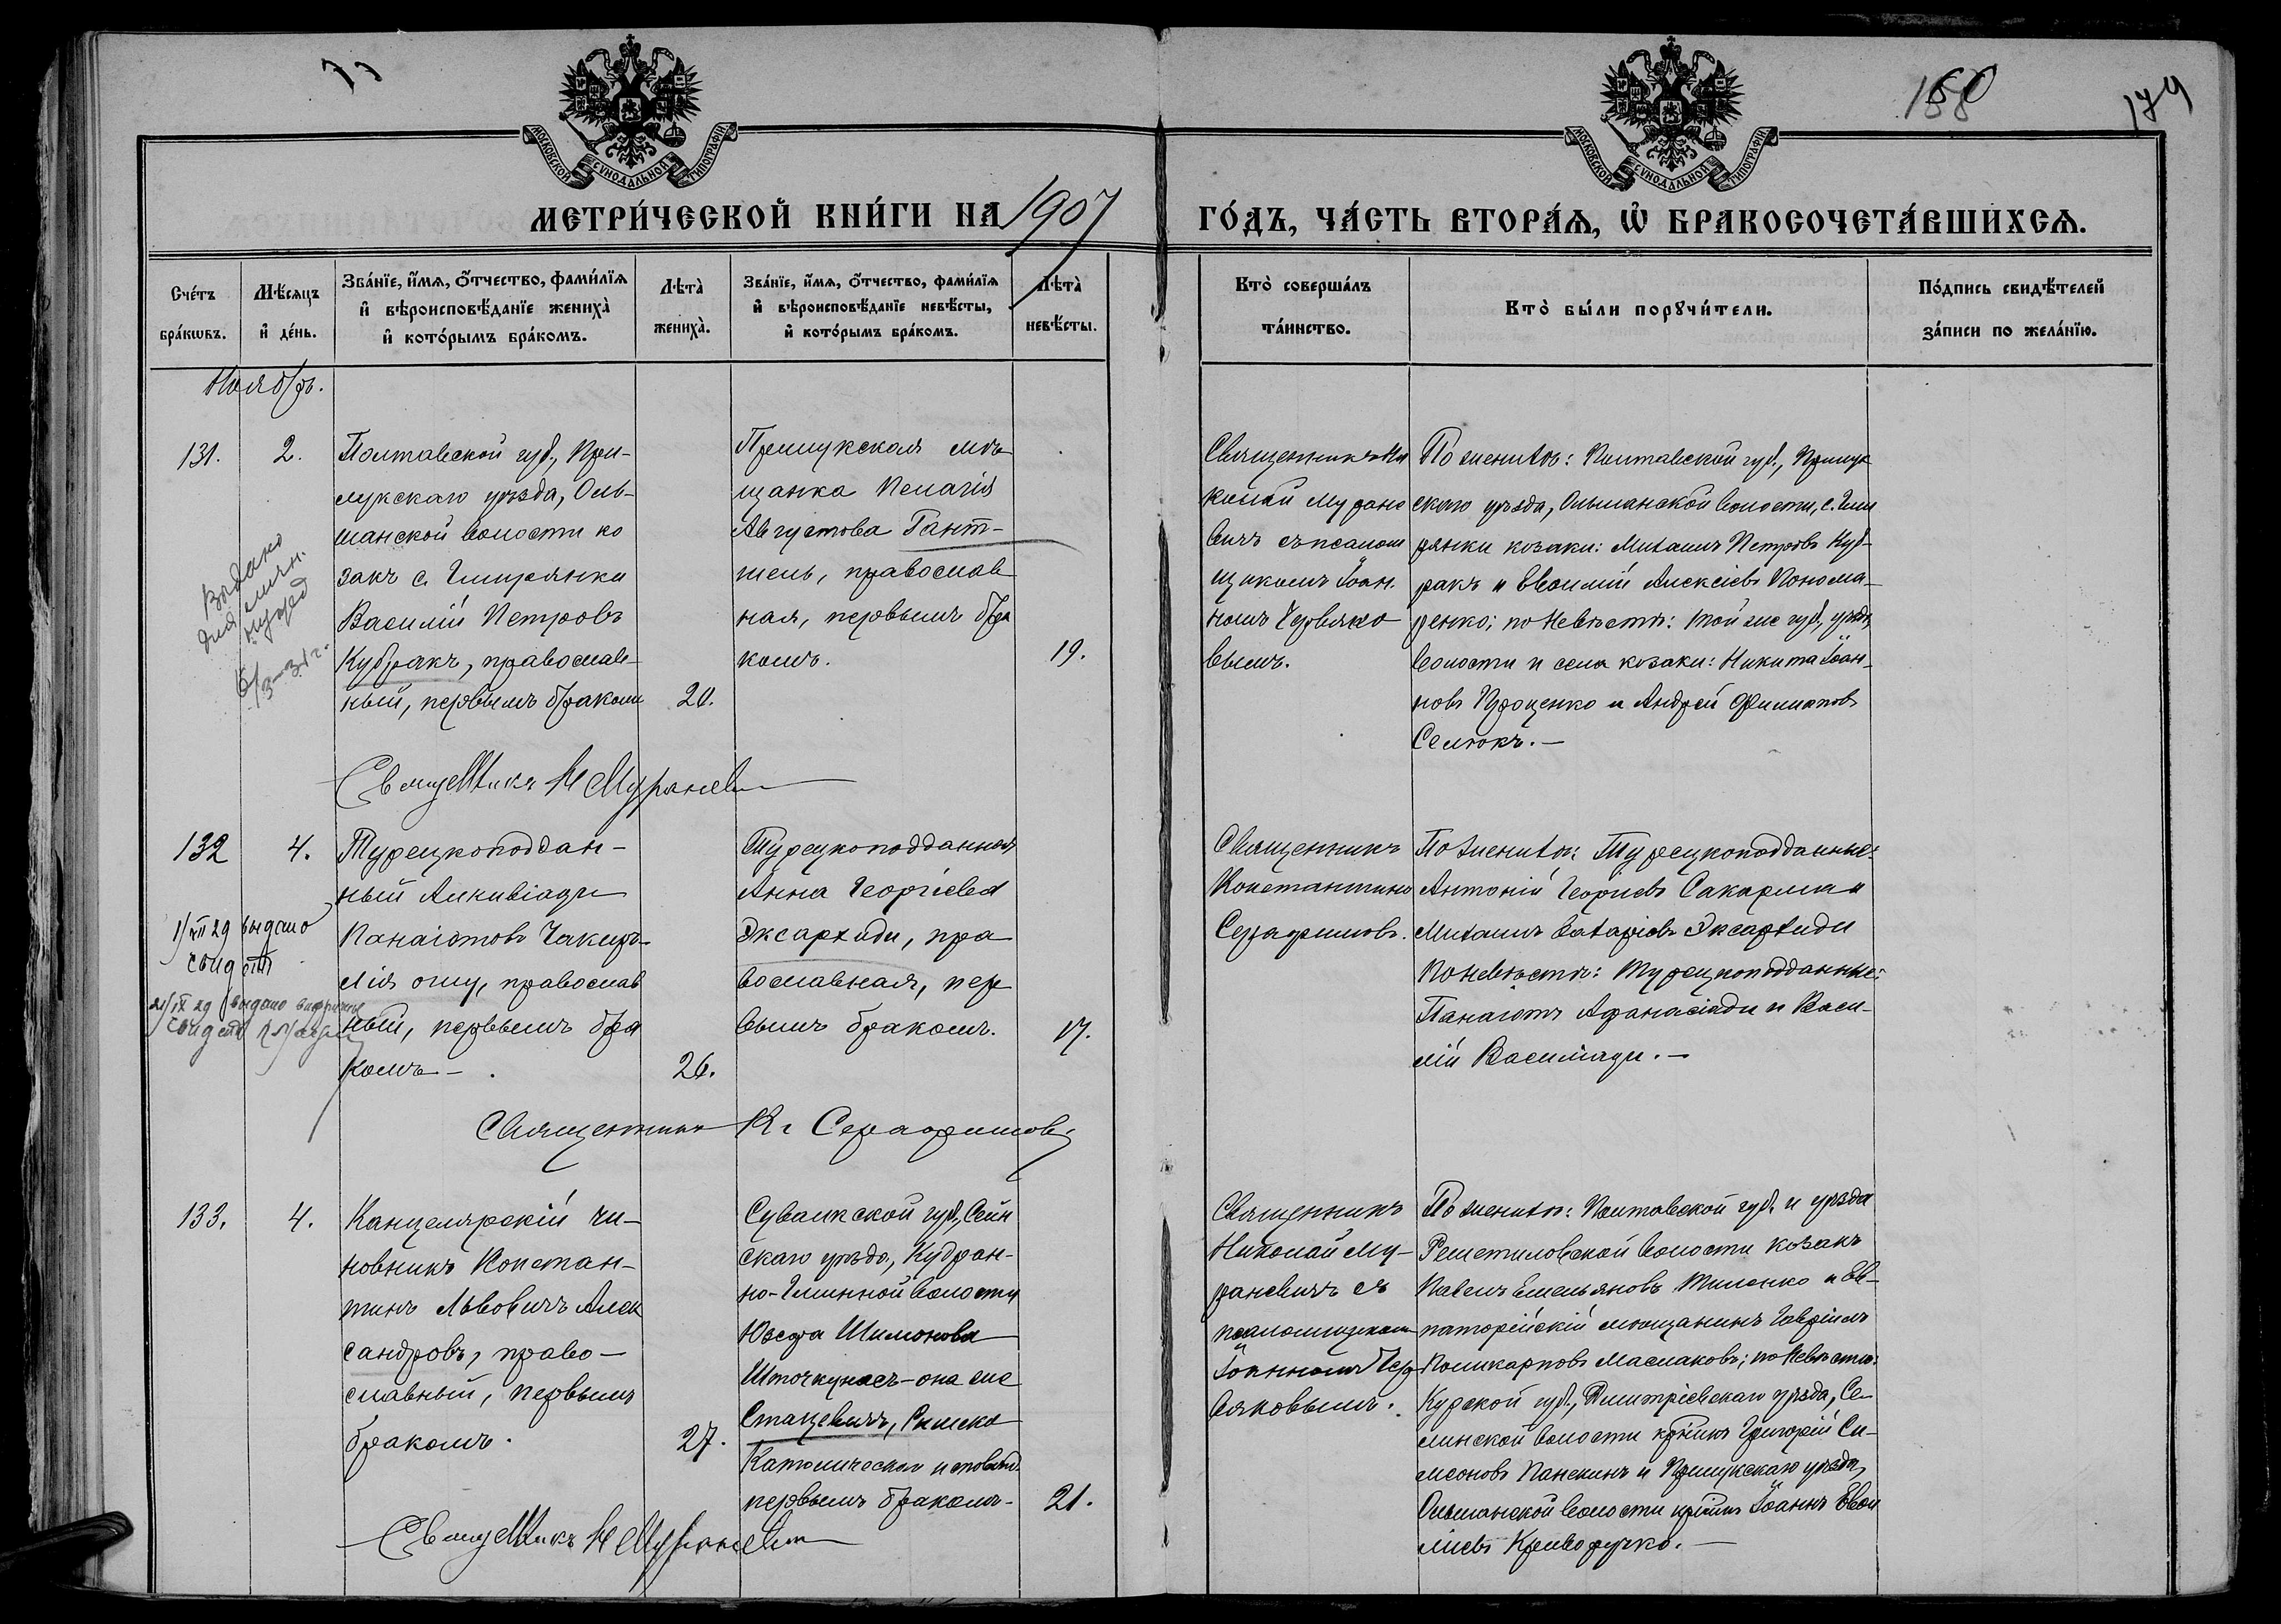 188
179
МОСКОВСКОЙ СѴНОДАЛЬНОЙ ТИПОГРАФІИ
МОСКОВСКОЙ СѴНОДАЛЬНОЙ ТИПОГРАФІИ
МЕТРИ́ЧЕСКОЙ КНИ́ГИ НА 1907 ГО́ДЪ, ЧА́СТЬ ВТОРА́Ѧ, Ѡ҆ БРАКОСОЧЕТА́ВШИХСѦ.
Сче́тъ
бра́кѡвъ.
Мѣ́сяцъ
и҆ де́нь.
Зва́нїе, и҆́мѧ, ѻ҆́тчество, фами́лїѧ
и҆ вѣроисповѣ́данїе жениха̀
и҆ кото́рымъ бра́комъ.
Лѣта̀
жениха̀.
Зва́нїе, и҆́мѧ, ѻ҆́тчество, фами́лїѧ
и҆ вѣроисповѣ́данїе невѣ́сты,
и҆ кото́рымъ бра́комъ.
Лѣта̀
невѣ́сты.
Кто̀ соверша́лъ
та́инство.
Кто̀ бы́ли порꙋчи́тели.
По́дпись свидѣ́телей
за́писи по жела́нїю.
Ноябрь.
131.
2.
Полтавской губ., При-
лукскаго уѣзда, Оль-
шанской волости ко
закъ с. Гмирянки
Василій Петровъ
Кубракъ, православ-
ный, первымъ бракомъ
20.
Прилукская мѣ
щанка Пелагія
Августова Гант-
мель, православ
ная, первымъ бра
комъ.
19.
Священникъ Ни
колай Мурано
вичъ съ псалом
щикомъ Іоан.
номъ Червяко
вымъ.
По женихѣ: Полтавской губ., Прилук
скаго уѣзда, Ольшанской волости, с. Гми
рянки козаки: Михаилъ Петровъ Куб-
ракъ и Евѳимій Алексіевъ Понома-
ренко; по невѣстѣ: той же губ., уѣзда,
волости и села козаки: Никита Іоан-
новъ Проценко и Андрей Филиповъ
Селюкъ.—
Выдано
для
Священникъ Н Мураневич
132
4.
Турецкоподдан-
ный Алкивіадъ
Панаіотовъ Чакиръ-
оглу, православ
ный, первымъ бра
комъ-.
26.
Турецкоподданная
Анна Георгіева
Эксархиди, пра
вославная, пер
вымъ бракомъ.
17.
Священникъ
Константинъ
Серафимовъ.
По женихѣ: Турецкоподданные:
Антоній Георгіевъ Сакарли и
Михаилъ Захаріевъ Эксархиди
По невѣстѣ: Турецкоподданные:
Панагіотъ Афанасіади и Васи-
лій Василіади.—
1) XII 29 выдано
свид
21/IX 29 выдано
Священникъ К. Серафимовъ
133.
4.
Канцелярскій чи-
новникъ Констан-
тинъ Львовичъ Алек
сандровъ, право-
славный, первымъ
бракомъ.
27.
Сувалкской губ., Сейн
скаго уѣзда, Кудран-
но-Гминной волости
Юзефа Шимонова
Шточкунасъ-она же
Стацевичъ, Римско
Католическаго исповѣд.
первымъ бракомъ-
21.
Священникъ
Николай Му-
раневичъ съ
псаломщикомъ
Іоанномъ Чер
вяковымъ.
По женихѣ: Полтавской губ. и уѣзда
Решетиловской волости козакъ
Павелъ Емельяновъ Тиленко и Ев-
паторійскій мѣщанинъ Гавріилъ
Поликарповъ Маслаковъ; по невѣстѣ:
Курской губ., Дмитріевскаго уѣзда, Се
линской волости крнинъ Григорій Си-
меоновъ Панскинъ и Прилукскаго уѣзда,
Ольшанской волости крнинъ Іоаннъ Евѳи
міевъ Криворучко.—
Священникъ Н Мураневич